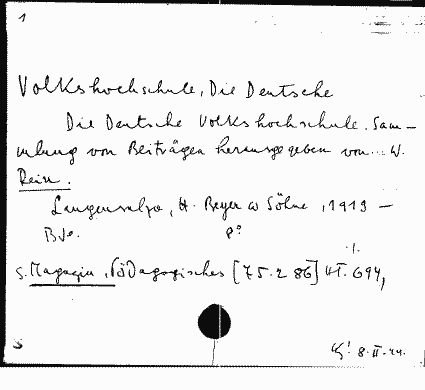 1
Volkshochschule, Die Deutsche
Die Deutsche Volkshochschule. Sam-
mlung von Beiträgen herausgegeben von... W.
Rein.
Langensalza, H. Beyer u Söhne, 1919 —
Bde. 8°
s. Magazin, Pädagogisches [75.2 86] HT. 694,
8.II.44.